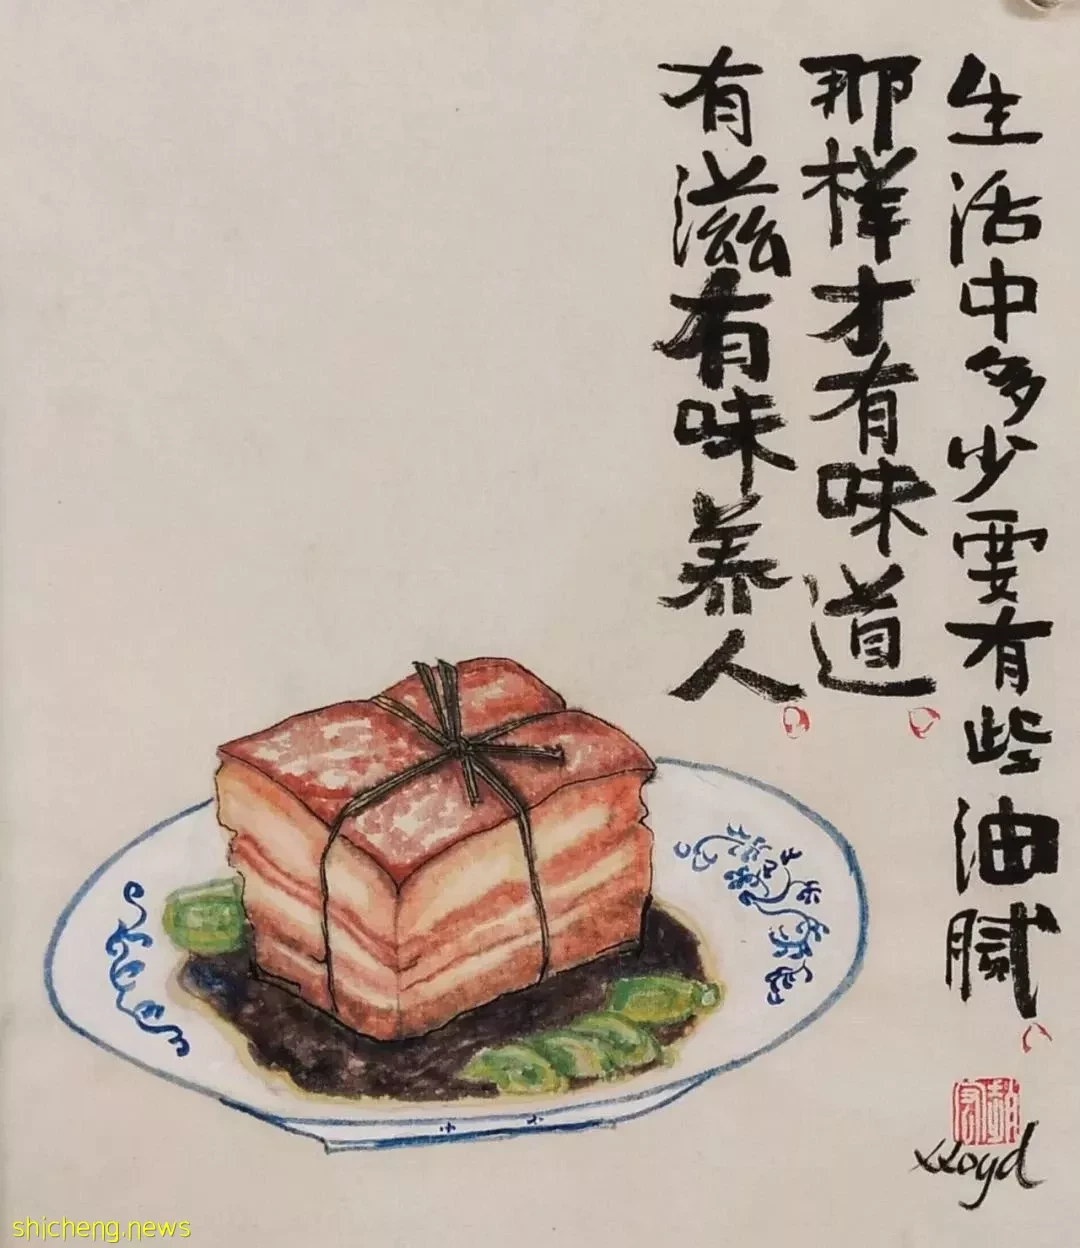 生活中多少要有些油腻
那样才有味道
有滋有味养人
Lloyd
shicheng.news